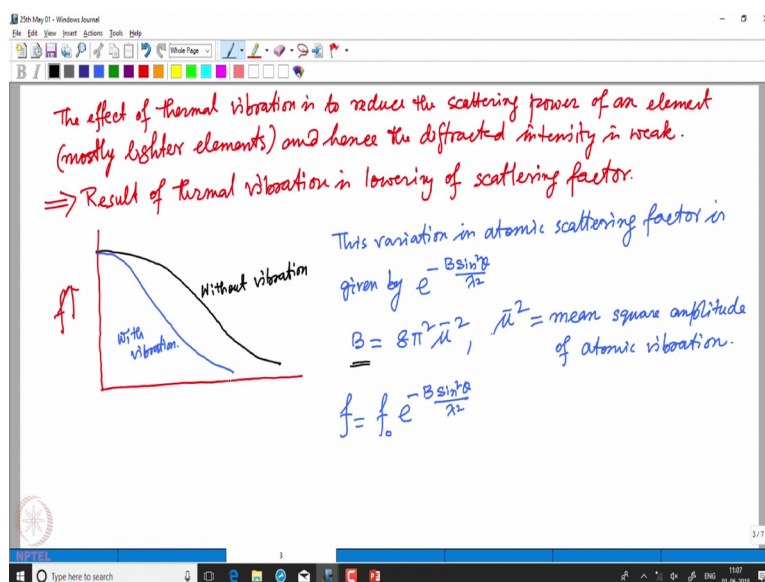 25th May 01 - Windows Journal
File Edit View Insert Actions Tools Help
Whole Page
B I
The effect of thermal vibration is to reduce the scattering power of an element
(mostly lighter elements) and hence the diffracted intensity is weak.
⇒ Result of thermal vibration is lowering of scattering factor.
This variation in atomic scattering factor is
given by e^(-B sin²θ/λ²)
B = 8π² ū², ū² = mean square amplitude
of atomic vibration.
f = f₀ e^(-B sin²θ/λ²)
f↑
Without vibration
With
vibration.
3/7
NPTEL
3
Type here to search
ENG
11:07
01-06-2018